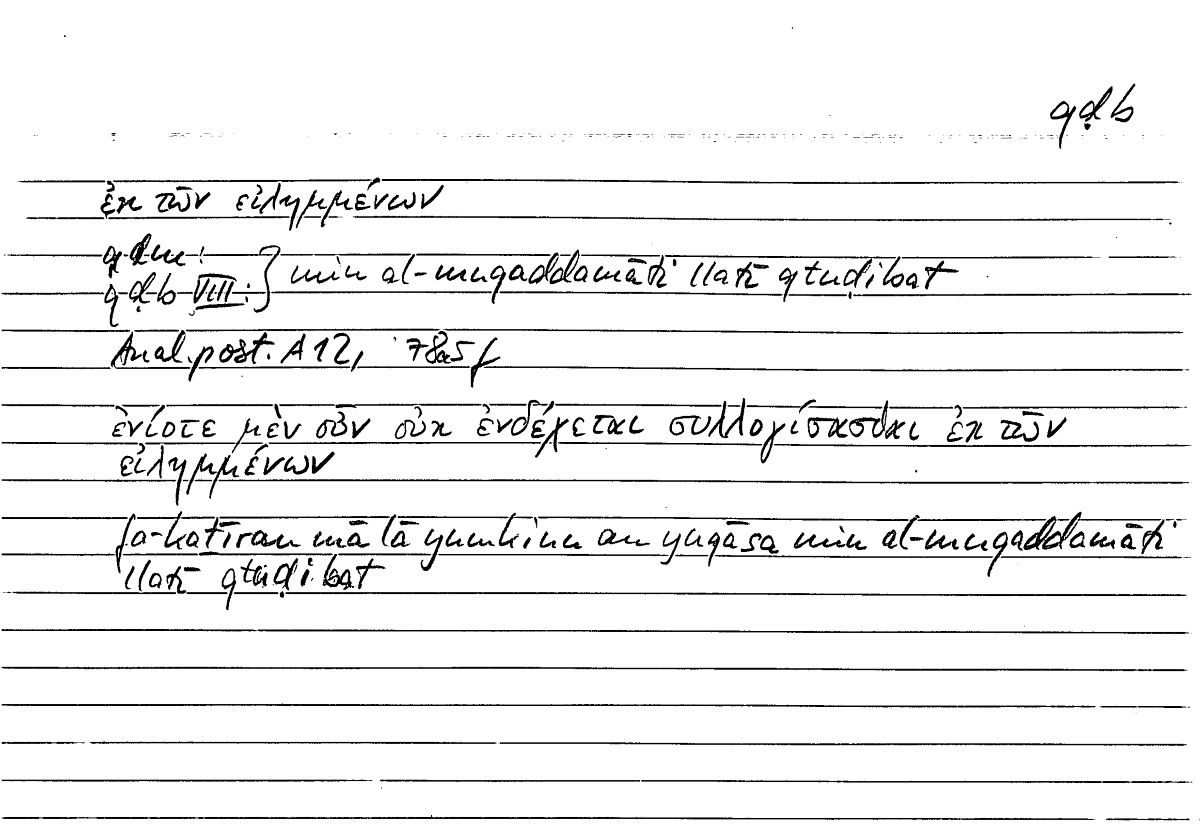 qḍb
ἐκ τῶν εἰλημμένων
qdm:
qḍb VIII:} min al-muqaddamāti llatī qtuḍibat
Anal. post. A 12, 78a5 f
ἐνίοτε μὲν οὖν οὐκ ἐνδέχεται συλλογίσασθαι ἐκ τῶν
εἰλημμένων
fa-kaṯīran mā lā yumkinu an yuqāsa min al-muqaddamāti
llatī qtuḍibat